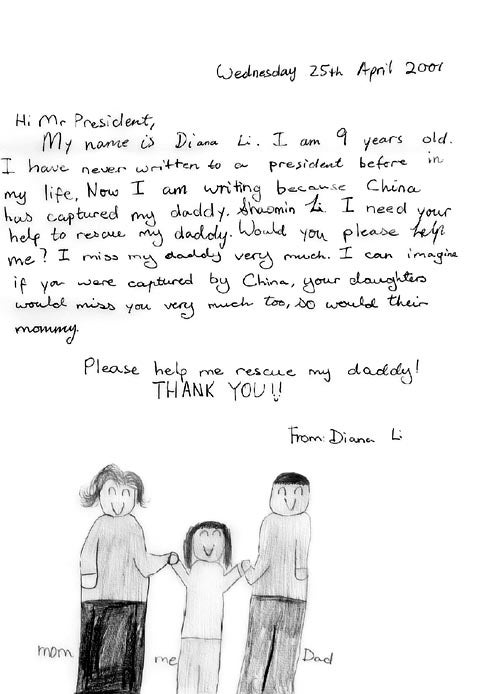 Wednesday 25th April 2001
Hi Mr President,
My name is Diana Li. I am 9 years old.
I have never written to a president before in
my life, Now I am writing because China
has captured my daddy. Shaomin Li. I need your
help to rescue my daddy. Would you please help
me? I miss my daddy very much. I can imagine
if you were captured by China, your daughters
would miss you very much too, so would their
mommy.
Please help me rescue my daddy!
THANK YOU!!
From: Diana Li
mom
me
Dad